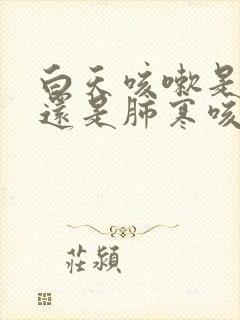 白天咳嗽是
還是肺寒咳
莊潁